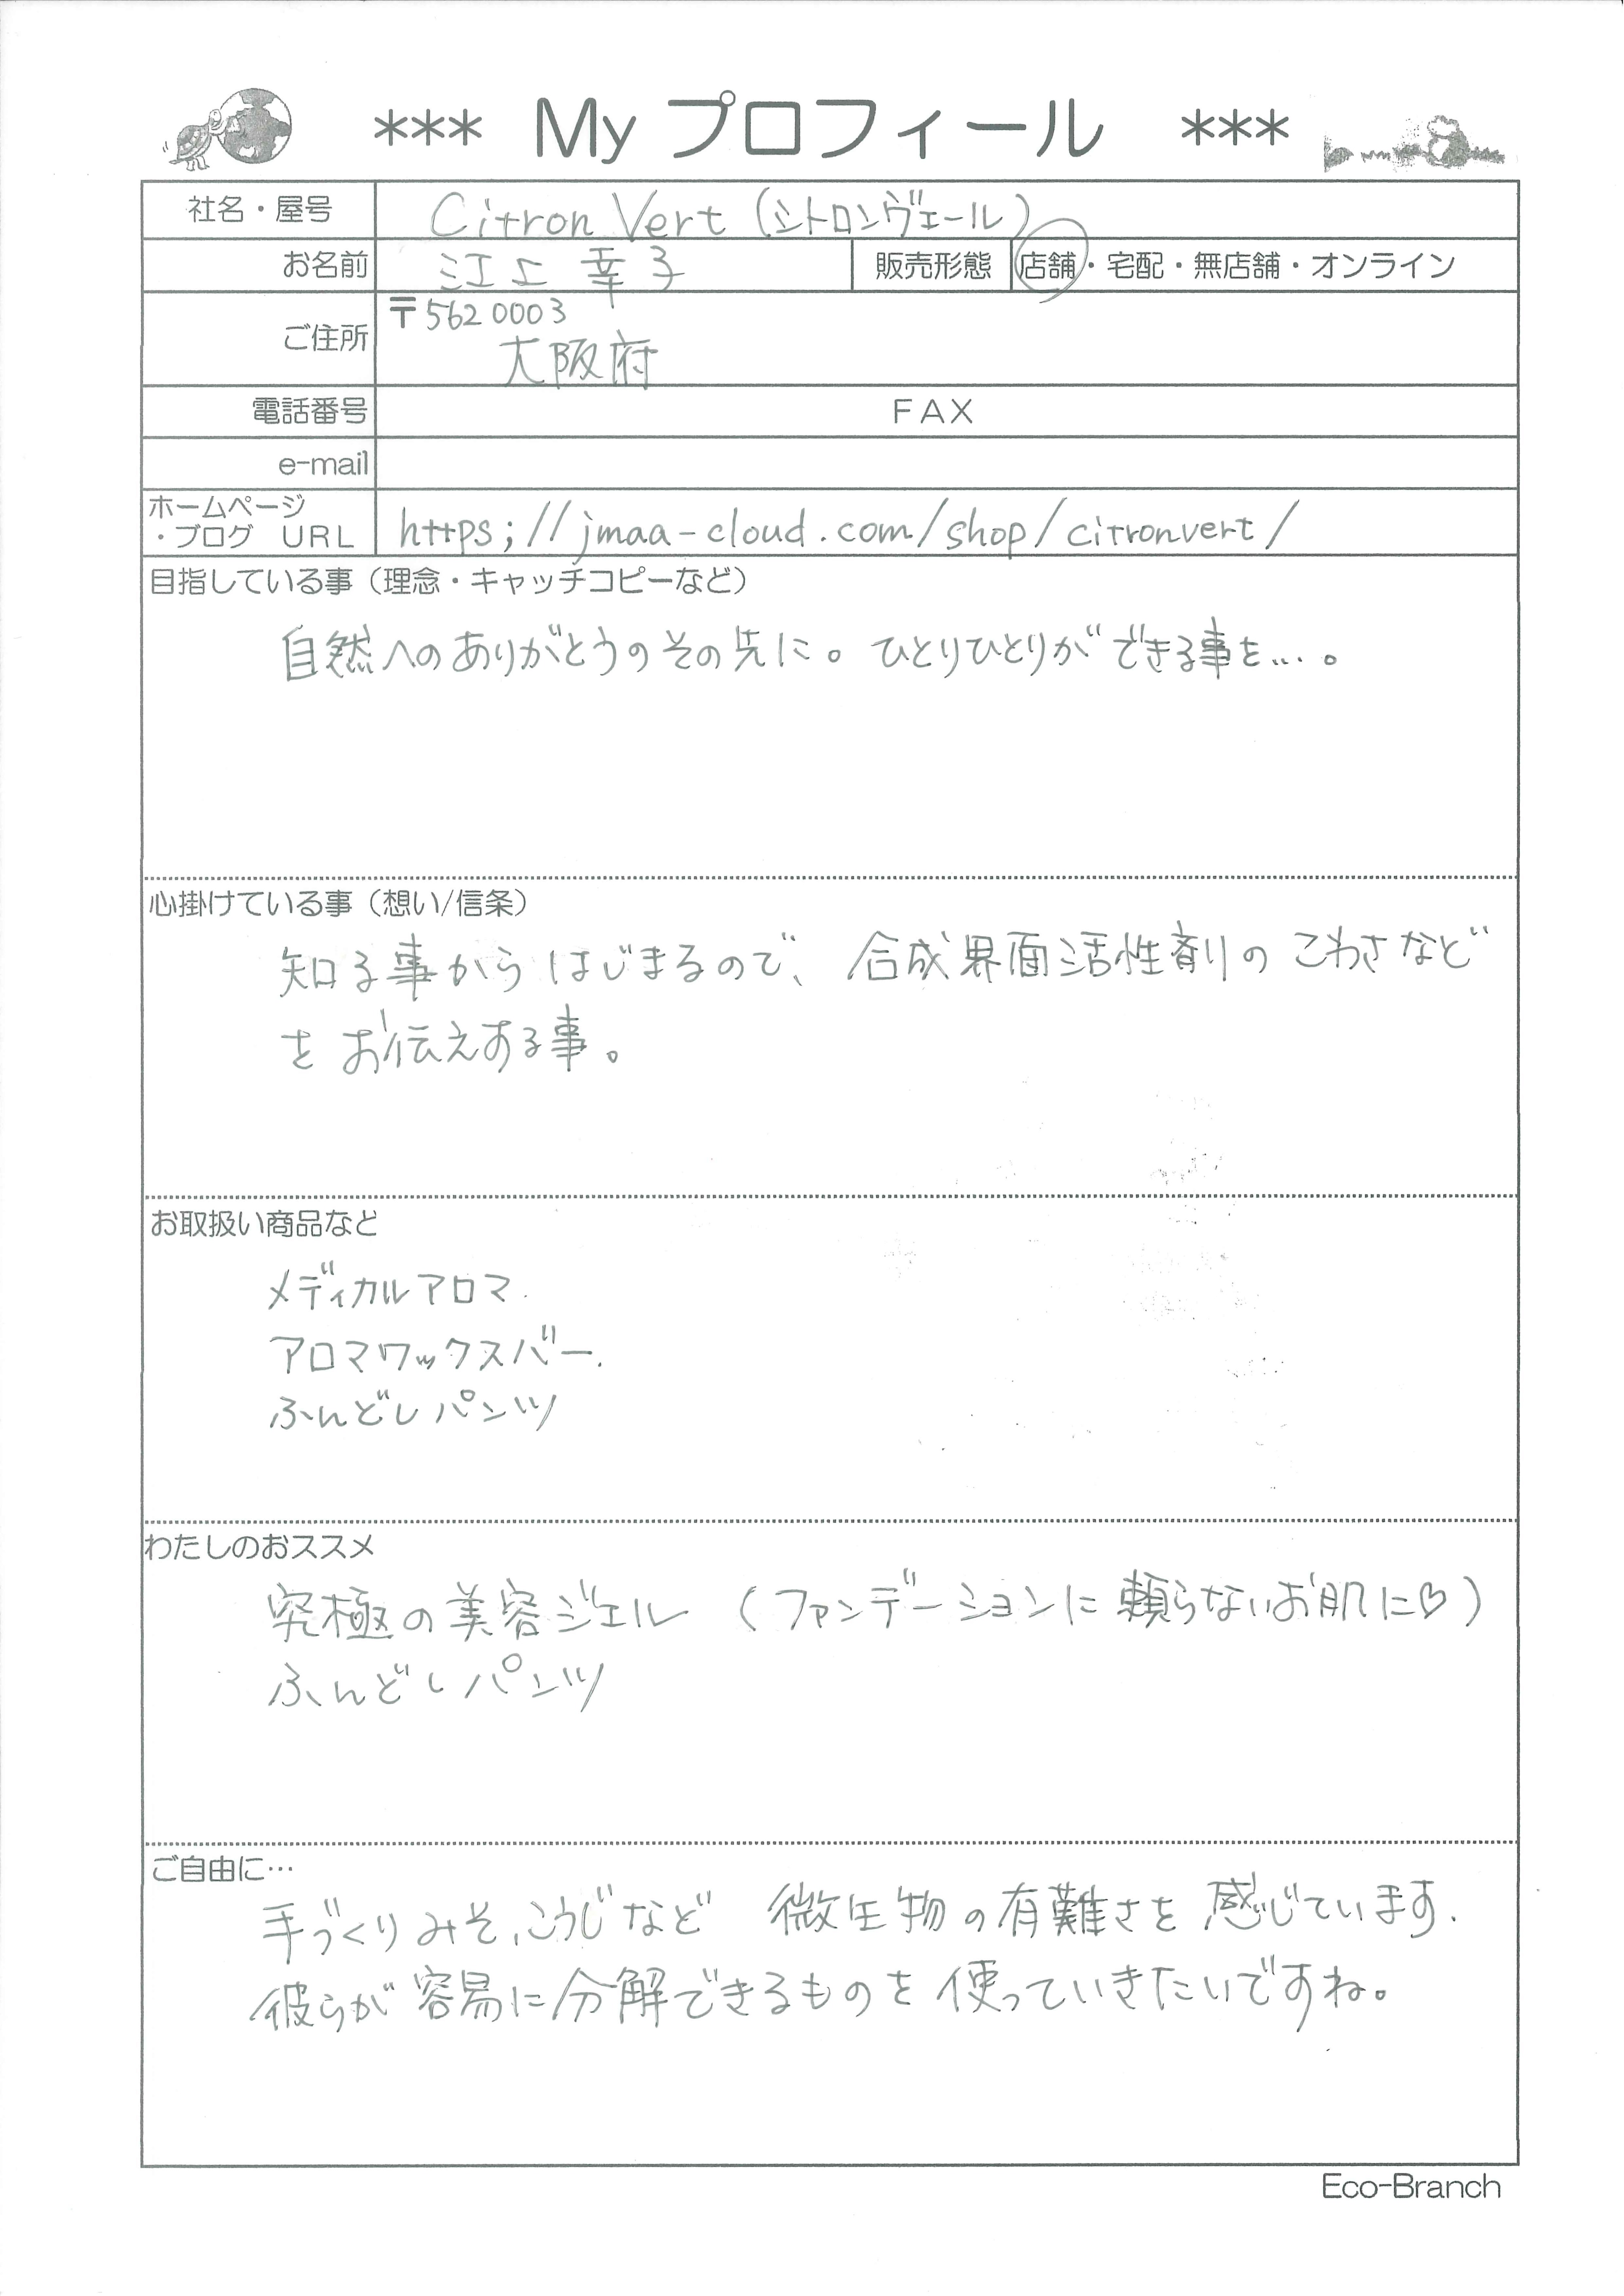 *** My プロフィール ***
社名・屋号 Citron Vert (シトロンヴェール)
お名前 江上 幸子 販売形態 店舗・宅配・無店舗・オンライン
ご住所 〒5620003
大阪府
電話番号 FAX
e-mail
ホームページ
・ブログ URL https;//jmaa-cloud.com/shop/citronvert/
目指している事(理念・キャッチコピーなど)
自然へのありがとうのその先に。ひとりひとりができる事を…。
心掛けている事(想い/信条)
知る事からはじまるので、合成界面活性剤のこわさなど
をお伝えする事。
お取扱い商品など
メディカルアロマ.
アロマワックスバー.
ふんどしパンツ
わたしのおススメ
究極の美容ジェル (ファンデーションに頼らないお肌に♡)
ふんどしパンツ
ご自由に…
手づくりみそ、こうじなど 微生物の有難さを感じています.
彼らが容易に分解できるものを使っていきたいですね。
Eco-Branch